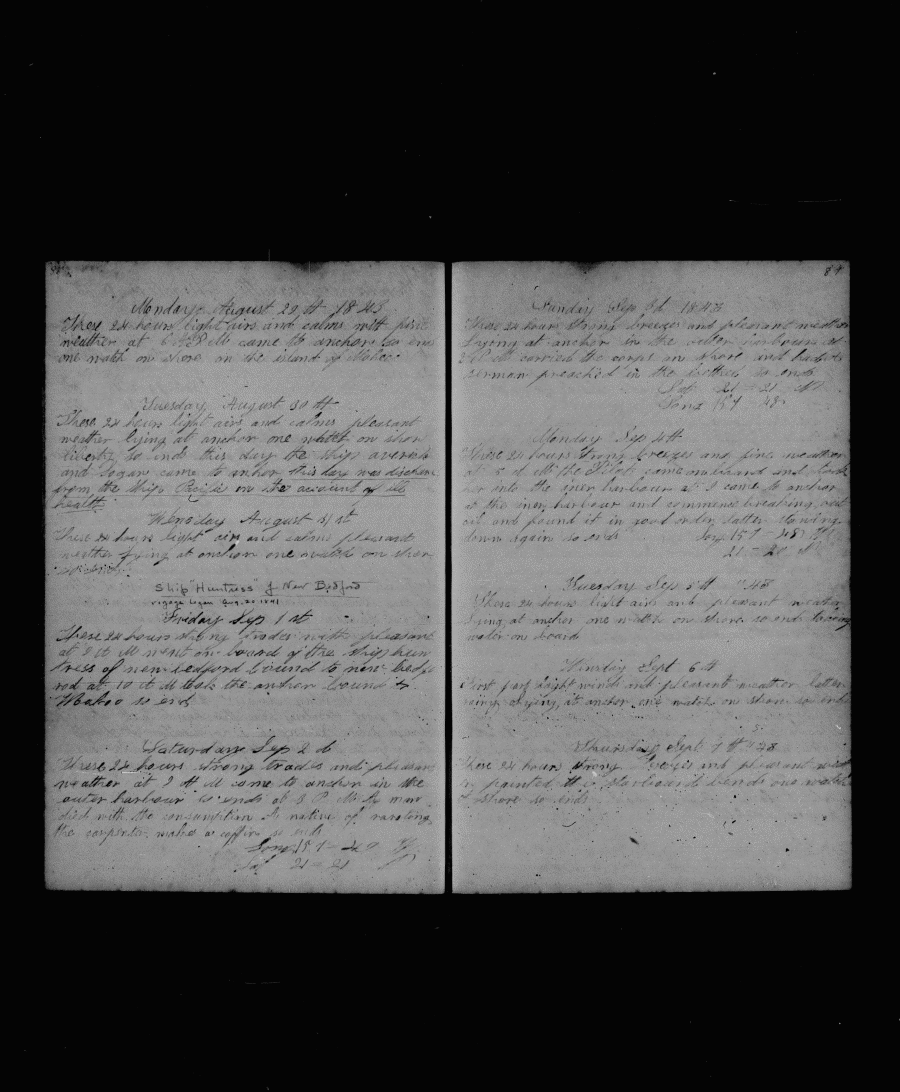 Monday August 29th 1843
These 24 hours light airs and calms with fine
weather at 6 PM came to anchor so ends
one watch on shore on the island of
Tuesday August 30th
These 24 hours light airs and calms pleasant
weather lying at anchor one watch on shore
liberty so ends this day the ships
and Logan came to anchor this day was discharg
from the ship Pacific on the account of ill
health
Wensday August 31st
These 24 hours light airs and calms pleasant
weather lying at anchor one watch on shore
so ends
Ship "Huntress" of New Bedford
voyage began Aug. 1841
Friday Sep 1st
These 24 hours strong trades with pleasant
at 9 A M went on board of the ship hun
tress of new bedford bound to new bedf
rod at 10 A M took the anchor bound to
Woahoo so ends
Saturdan Sep 2 d
These 24 hours strong trades and pleasant
weather at 9 A M came to anchor in the
outer harbour so ends at 8 P M the man
died with the consumption A native of
the carpenter makes a coffin so ends
Long 157
Lat 21 = 21
84
Sunday Sep 3d 1843
These 24 hours strong breezes and pleasant weather
Lyeny at anchor in the outer harbour at
P M carried the corps on shore and had
sermon preached in the bethel so ends
Lat 21 = 21
Long 157
Monday Sep 4th
These 24 hours strong breezes and fine weather
at 5 A M the Pilot came onboard and took
her into the iner harbour at 9 came to anchor
at the iner harbour and commence breaking out
oil and found it in good order latter stowing
down again so ends Long 157
21 = 20
Tuesday Sep 5th 43
These 24 hours light airs and pleasant weather
Lying at anchor one watch on shore so ends taking
water on board
Winsday Sept 6th
First part light winds and pleasant weather latter
lying at anchor one watch on shore so ends
Thursday Sept 7th 43
These 24 hours strong breezes and pleasant
painted the starboard bends one watch
shore so ends